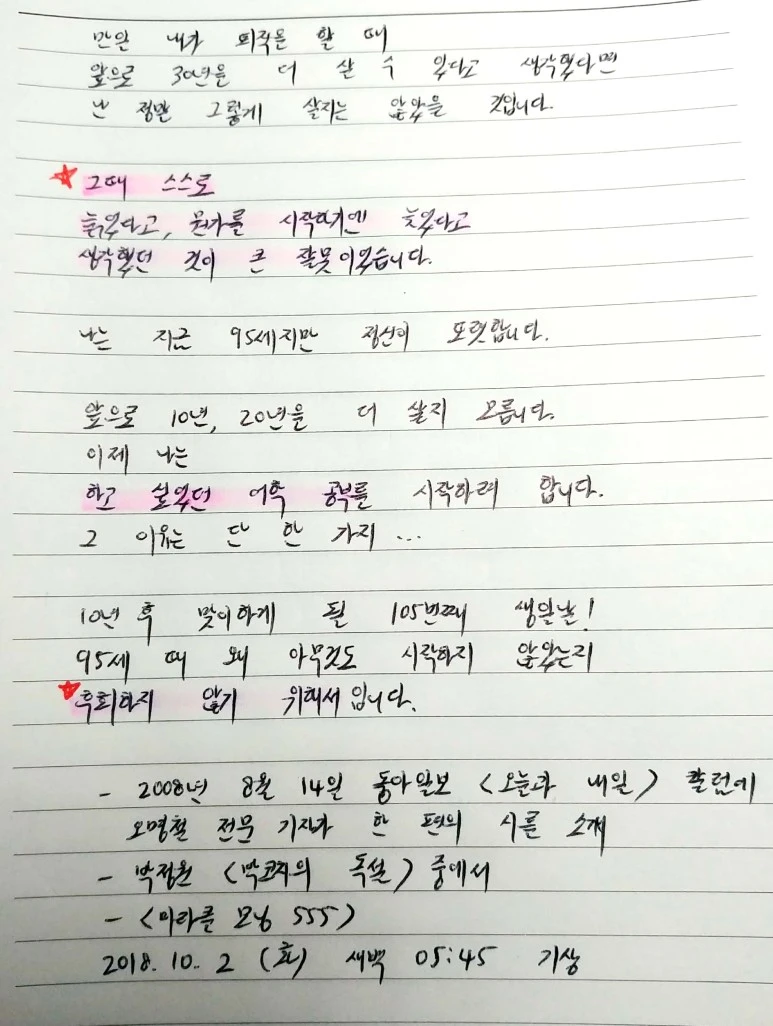 만일 내가 퇴직을 할 때
앞으로 30년을 더 살 수 있다고 생각했다면
난 정말 그렇게 살지는 않았을 것입니다.
그때 스스로
늙었다고, 뭔가를 시작하기엔 늦었다고
생각했던 것이 큰 잘못이었습니다.
나는 지금 95세지만 정신이 또렷합니다.
앞으로 10년, 20년을 더 살지 모릅니다.
이제 나는
하고 싶었던 어학 공부를 시작하려 합니다.
그 이유는 단 한 가지 ...
10년 후 맞이하게 될 105번째 생일날!
95세 때 왜 아무것도 시작하지 않았는지
후회하지 않기 위해서입니다.
- 2008년 8월 14일 동아일보 <오늘과 내일> 칼럼에
오명철 전문 기자가 한 편의 시를 소개
- 박정원 <박코치의 독설> 중에서
- <미라클 모닝 555>
2018. 10. 2 (화) 새벽 05:45 기상